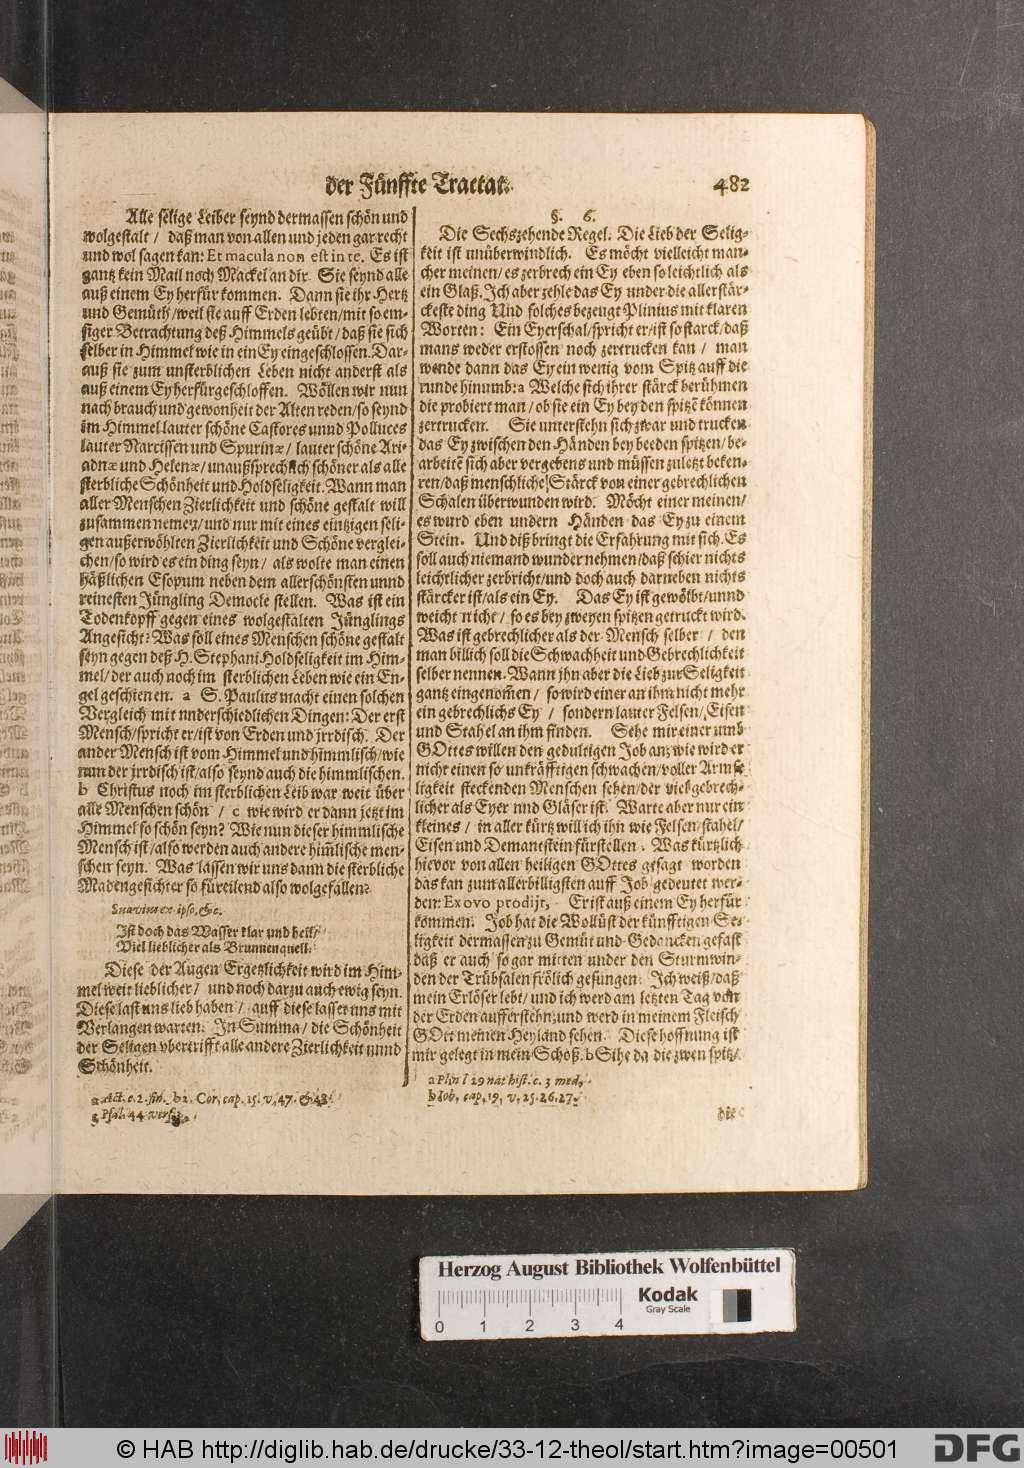 der Fünffte Tractat.
482
Alle selige Leiber seynd dermassen schön und
wolgestalt / daß man von allen und jeden gar recht
und wol sagen kan: Et macula non est in te. Es ist
gantz kein Mail noch Mackel an dir. Sie seynd alle
auß einem Ey herfür kommen. Dann sie ihr Hertz
und Gemüth / weil sie auff Erden lebten / mit so em-
siger Betrachtung deß Himmels geübt / daß sie sich
selber in Himmel wie in ein Ey eingeschlossen. Dar-
auß sie zum unsterblichen Leben nicht anderst als
auß einem Ey herfürgeschloffen. Wöllen wir nun
nach brauch und gewonheit der Alten reden / so seynd
im Himmel lauter schöne Castores unnd Polluces
lauter Narcissen und Spurinæ / lauter schöne Ari-
adnæ und Helenæ / unaußsprechlich schöner als alle
sterbliche Schönheit und Holdseligkeit. Wann man
aller Menschen Zierlichkeit und schöne gestalt will
zusammen nemen / und nur mit eines eintzigen seli-
gen außerwöhlten Zierlichkeit und Schöne verglei-
chen / so wird es ein ding seyn / als wolte man einen
häßlichen Esopum neben dem allerschönsten unnd
reinesten Jüngling Democle stellen. Was ist ein
Todenkopff gegen eines wolgestalten Jünglings
Angesicht? Was soll eines Menschen schöne gestalt
seyn gegen deß H. Stephani Holdseligkeit im Him-
mel / der auch noch im sterblichen Leben wie ein En-
gel geschienen. a S. Paulus macht einen solchen
Vergleich mit nnderschiedlichen Dingen: Der erst
Mensch / spricht er / ist von Erden und jrrdisch. Der
ander Mensch ist vom Himmel und himmlisch / wie
nun der jrrdisch ist / also seynd auch die himmlischen.
b Christus noch im sterblichen Leib war weit über
alle Menschen schön / c wie wird er dann jetzt im
Himmel so schön seyn? Wie nun dieser himmlische
Mensch ist / also werden auch andere him̃lische men-
schen seyn. Was lassen wir uns dann die sterbliche
Madengesichter so füreilend also wolgefallen?
Suavius ex ipso, &c.
Ist doch das Wasser klar und hell /
Viel lieblicher als Brunnenquell.
Diese der Augen Ergetzlichkeit wird im Him-
mel weit lieblicher / und noch darzu auch ewig seyn.
Diese last uns lieb haben / auff diese lasset uns mit
Verlangen warten. In Summa / die Schönheit
der Seligen vbertrifft alle andere Zierlichkeit unnd
Schönheit.
a Act. c. 2. fin. b 2. Cor. cap. 15. v. 47. & 48.
g Psal. 44. vers. 3.
§. 6.
Die Sechszehende Regel. Die Lieb der Selig-
keit ist unüberwindlich. Es möcht vielleicht man-
cher meinen / es zerbrech ein Ey eben so leichtlich als
ein Glaß. Ich aber zehle das Ey under die allerstär-
ckeste ding Und solches bezeugt Plinius mit klaren
Worten: Ein Eyerschal / spricht er / ist so starck / daß
mans weder erstossen noch zertrucken kan / man
wende dann das Ey ein wenig vom Spitz auff die
runde hinumb: a Welche sich ihrer stärck berühmen
die probiert man / ob sie ein Ey bey den spitzẽ können
zertrucken. Sie unterstehn sich zwar und trucken
das Ey zwischen den Händen bey beeden spitzen / be-
arbeitẽ sich aber vergebens und müssen zuletzt beken-
ren / daß menschliche Stärck von einer gebrechlichen
Schalen überwunden wird. Möcht einer meinen /
es wurd eben undern Händen das Ey zu einem
Stein. Und diß bringt die Erfahrung mit sich. Es
soll auch niemand wunder nehmen / daß schier nichts
leichtlicher zerbricht / und doch auch darneben nichts
stärcker ist / als ein Ey. Das Ey ist gewölbt / unnd
weicht nicht / so es bey zweyen spitzen getruckt wird.
Was ist gebrechlicher als der Mensch selber / den
man billich soll die Schwachheit und Gebrechlichkeit
selber nennen. Wann jhn aber die Lieb zur Seligkeit
gantz eingenom̃en / so wird einer an ihm nicht mehr
ein gebrechlichs Ey / sondern lauter Felsen / Eisen
und Stahel an ihm finden. Sehe mir einer umb
GOttes willen den gedultigen Job an: wie wird er
nicht einen so unkräfftigen schwachen / voller Armse-
ligkeit steckenden Menschen sehen / der viel gebrech-
licher als Eyer nnd Gläser ist. Warte aber nur ein
kleines / in aller kürtz will ich ihn wie Felsen / stahel /
Eisen und Demantstein fürstellen. Was kürtzlich
hievor von allen heiligen GOttes gesagt worden
das kan zum allerbilligsten auff Job gedeutet wer-
den: Ex ovo prodijt, Er ist auß einem Ey herfür
kommen. Job hat die Wollüst der künfftigen Se-
ligkeit dermassen zu Gemüt und Gedancken gefast
daß er auch so gar mitten under den Sturmwin-
den der Trübsalen frölich gesungen: Ich weiß / daß
mein Erlöser lebt / und ich werd am letzten Tag von
der Erden aufferstehn / und werd in meinem Fleisch
GOtt meinen Heyland sehen. Diese hoffnung ist
mir gelegt in mein Schoß. b Sihe da die zwen spitz /
a Plin l 29 nat hist. c. 3 med.
b Job, cap, 19, v, 25. 26. 27.
die
Herzog August Bibliothek Wolfenbüttel
Kodak
Gray Scale
0 1 2 3 4
© HAB http://diglib.hab.de/drucke/33-12-theol/start.htm?image=00501
DFG